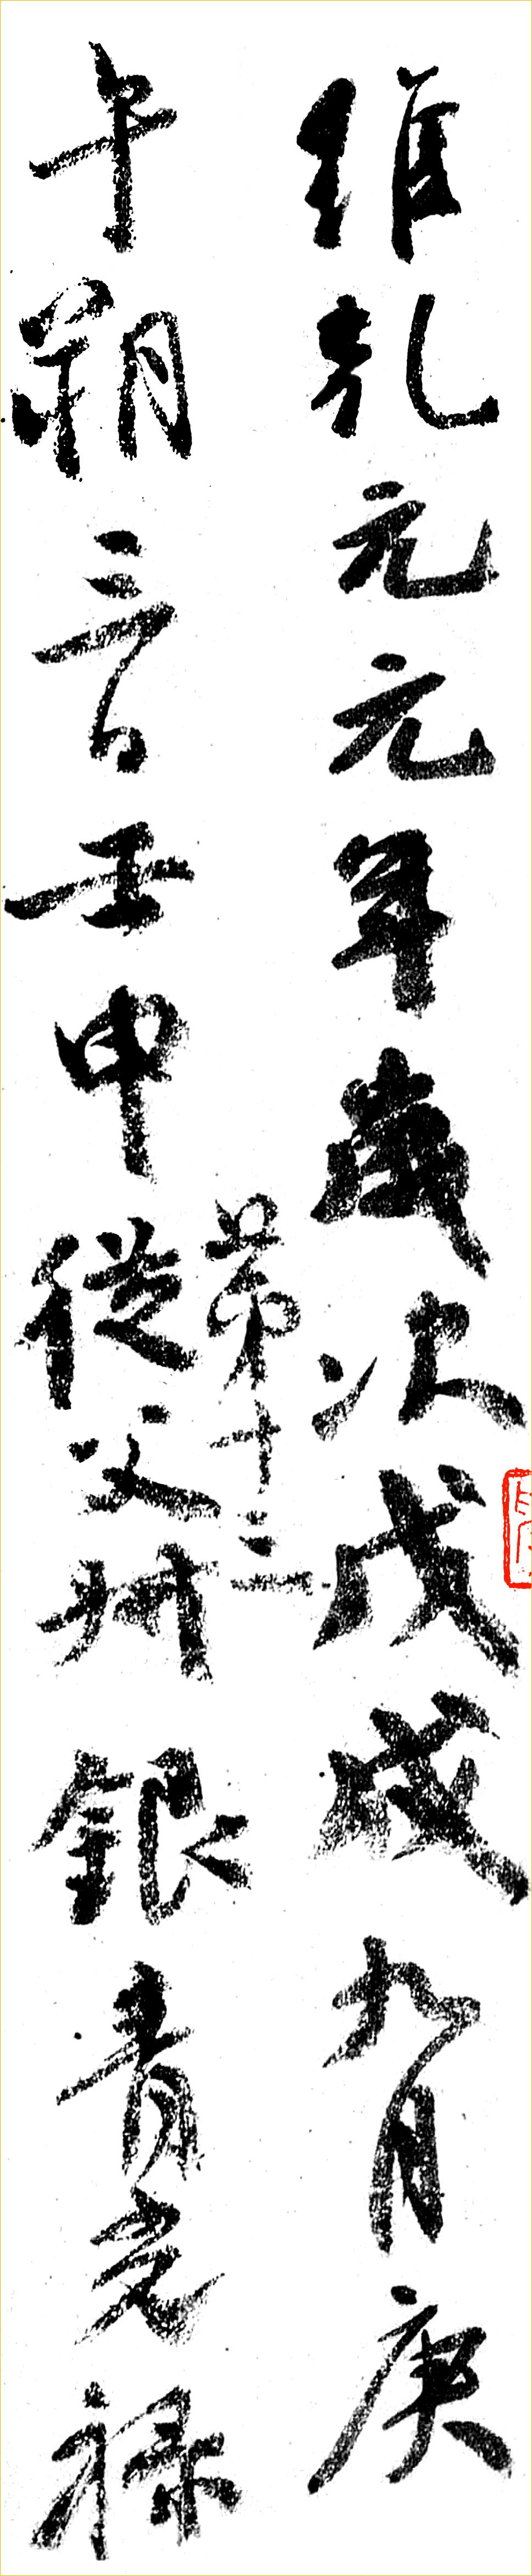 維乾元元年歲次戊戌九月庚
第十三
午朔三日壬申從父叔銀青光祿